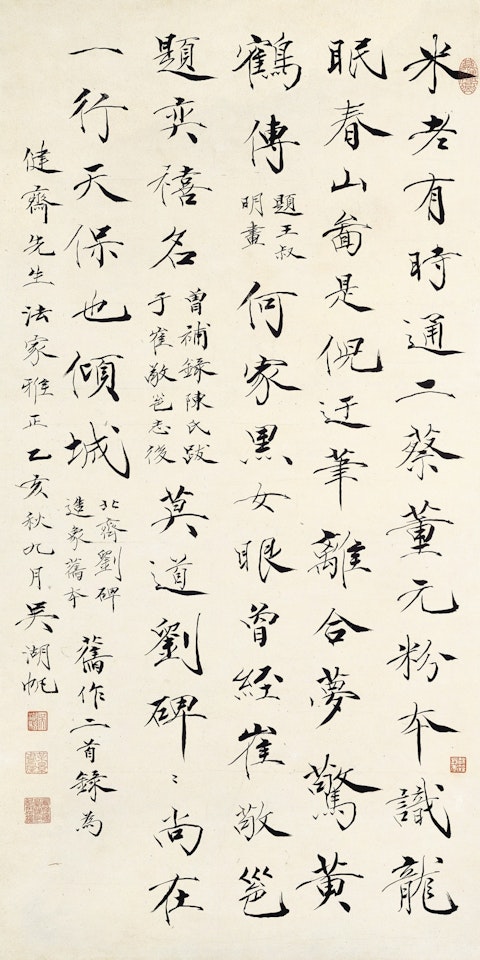 米老有時通二蔡董元粉本識龍
眠春山啚是倪迂筆離合夢驚黃
鶴傳
題王叔
明畫
何家黑女眼曾經崔敬邕
題奕禧名
曾補錄陳氏跋
于崔敬邕志後
莫道劉碑〻尚在
一行天保也傾城
北齊劉碑
造象舊本
舊作二首錄為
健齋先生法家雅正乙亥秋九月吳湖帆